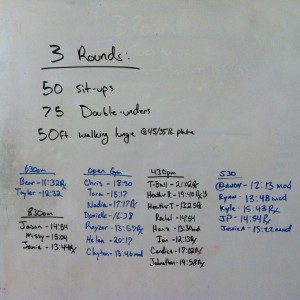 3 Rounds:
50 Sit-ups
75 Double-unders
50ft. walking lunge @45/35lb plate
630am
Bear - 11:32Rx
Taylor - 12:32
830am
Jason - 14:54
Missy - 15:04
Jamie - 13:44Rx
Open Gym
Chris - 18:30
Tara - 15:17
Nadia - 17:17Rx
Danielle - 16:38
Raybar - 13:57Rx
Helen - 20:17
Clayton - 13:48 mod
430pm
T-Bell - 21:02Rx
Heather B - 19:40Rx
Heather T - 13:25Rx
Rachel - 14:54
Hans - 13:30 mod
Ian - 12:13Rx
Candice - 17:02Rx
Johnathan - 14:58Rx
530
- 12:13 mod
Ryan - 13:48 mod
Kyle - 15:43Rx
JP - 14:54Rx
Jessica - 15:22 mod